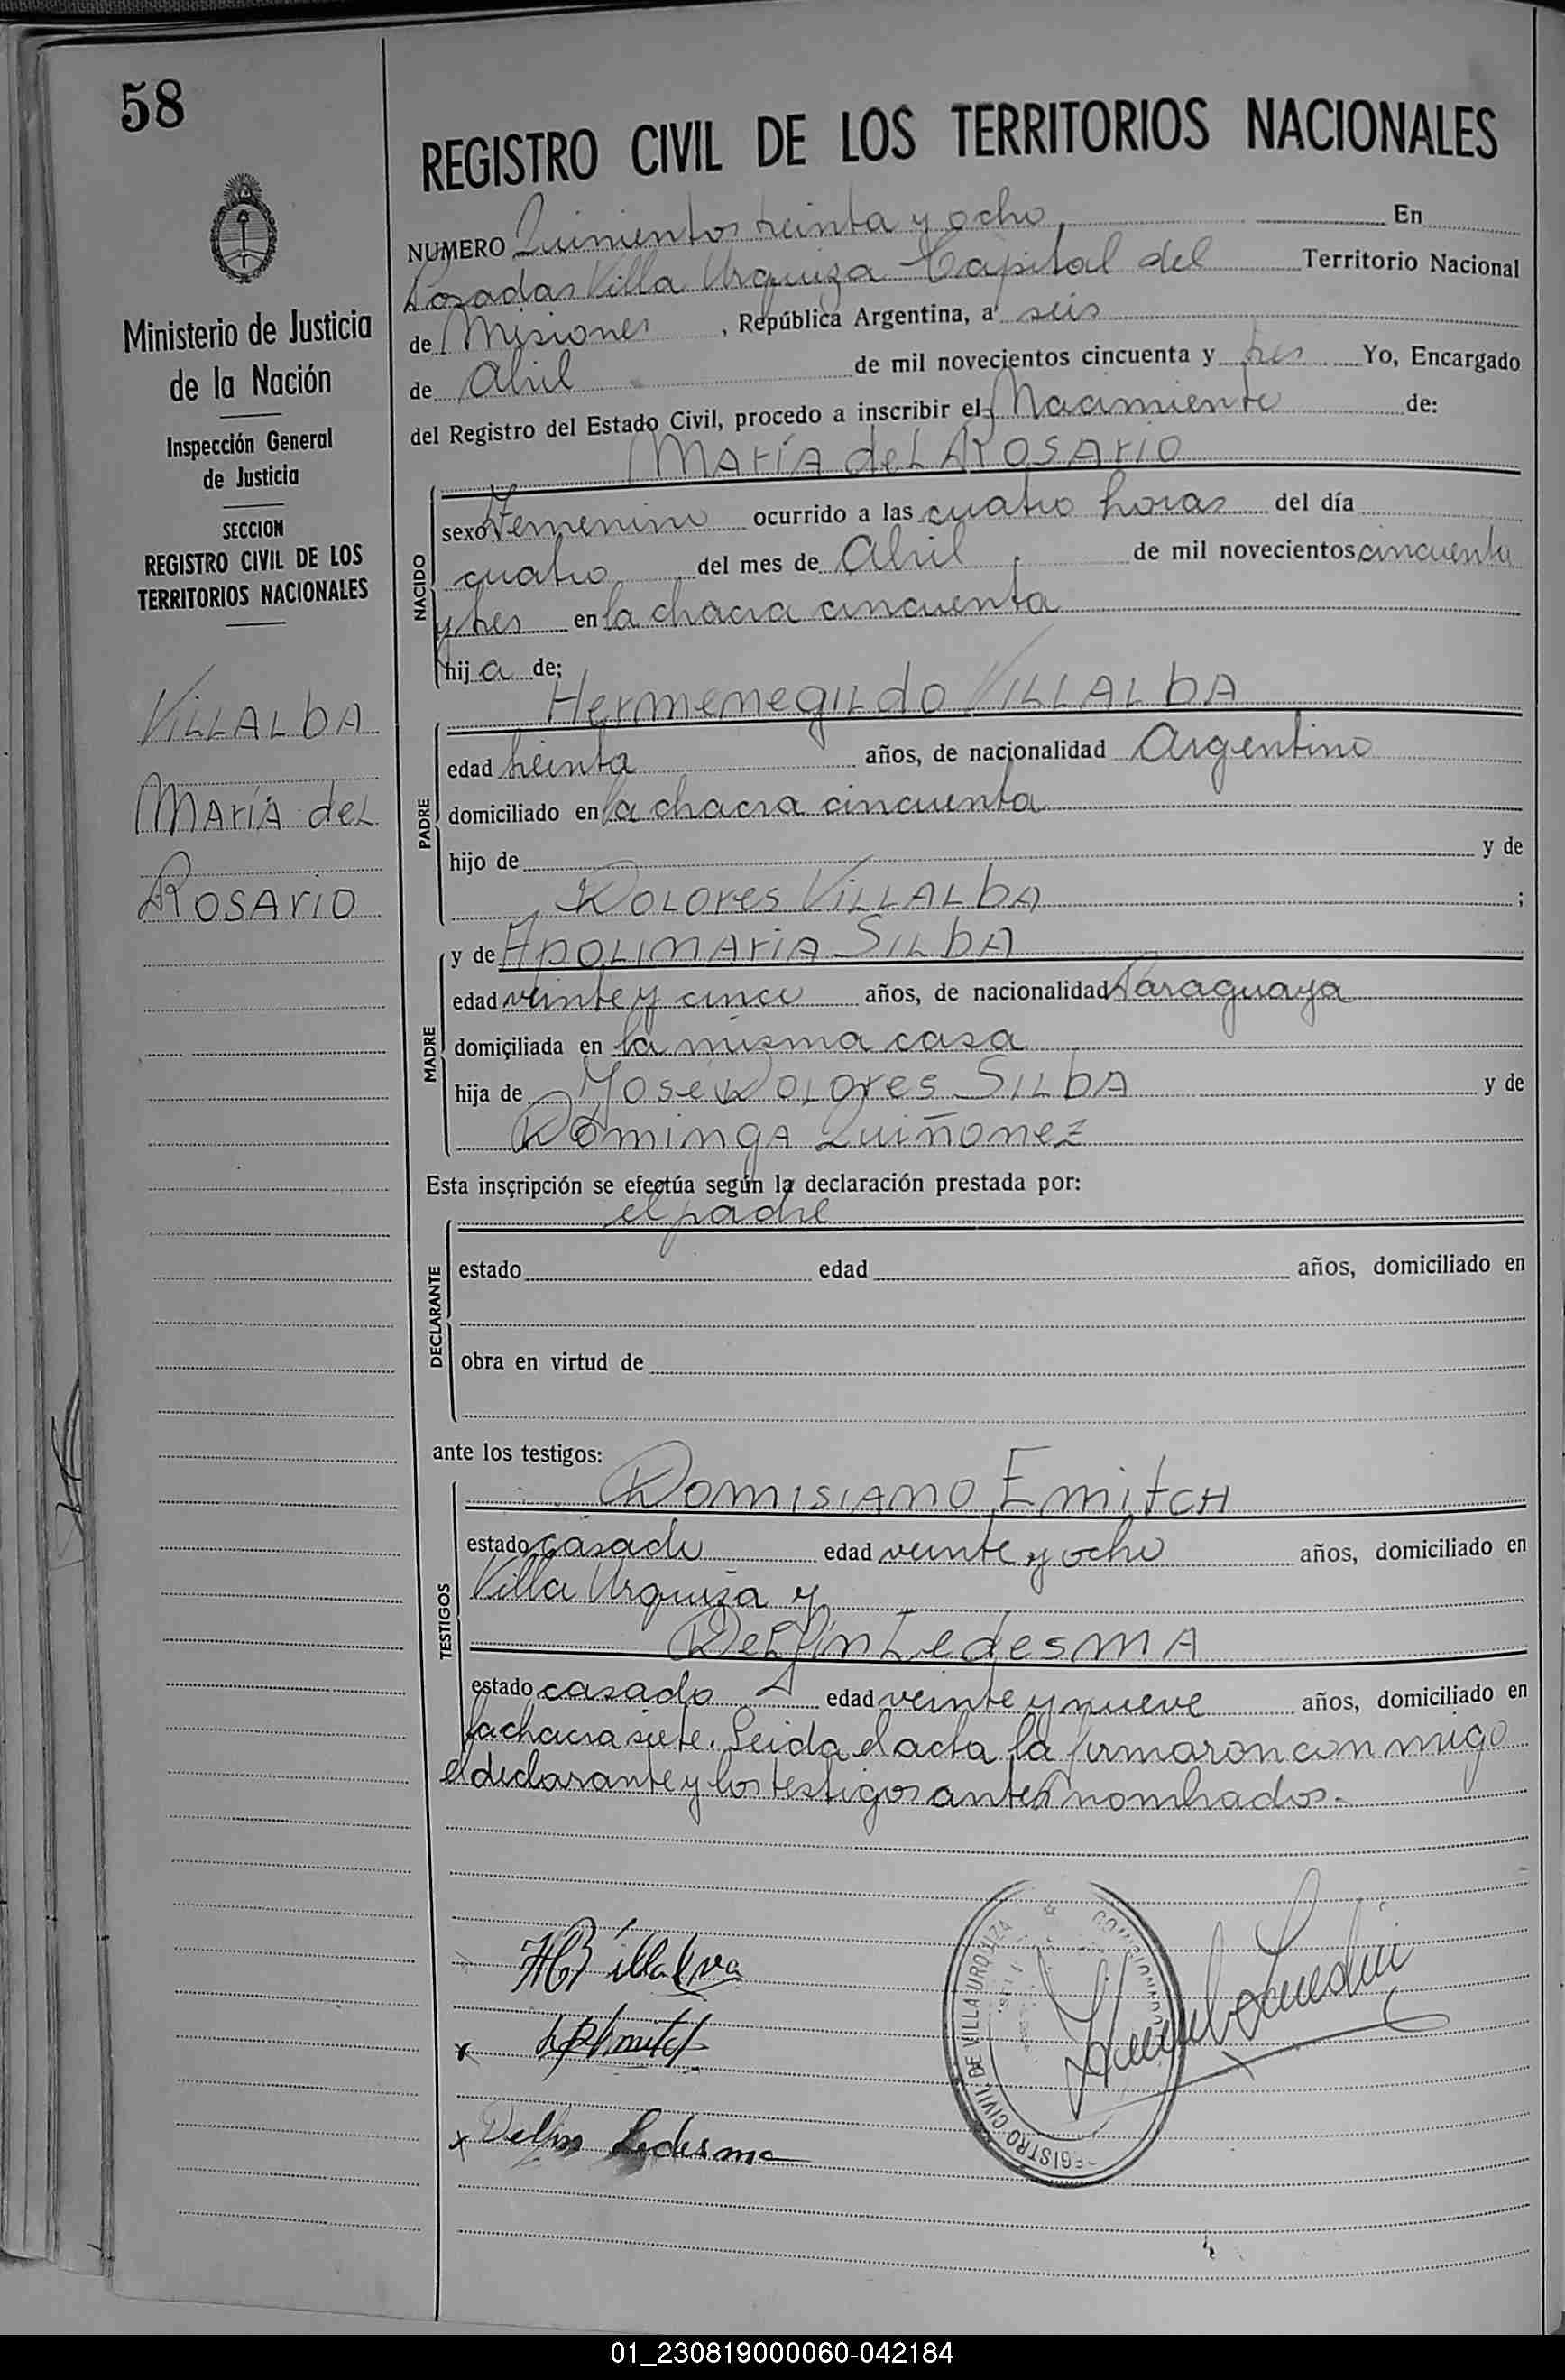 58
REGISTRO CIVIL DE LOS TERRITORIOS NACIONALES
NUMERO Quinientos treinta y ocho En
Posadas Villa Urquiza Capital del Territorio Nacional
de Misiones, República Argentina, a seis
de Abril de mil novecientos cincuenta y tres Yo, Encargado
del Registro del Estado Civil, procedo a inscribir el Nacimiento de:
MARÍA deL ROSARIO
NACIDO
sexo Femenino ocurrido a las cuatro horas del día
cuatro del mes de Abril de mil novecientos cincuenta
y tres en la chacra cincuenta
hija de:
HermenegILdo VILLALbA
PADRE
edad treinta años, de nacionalidad Argentino
domiciliado en la chacra cincuenta
hijo de y de
DOLOres VILLALbA ;
y de APOLINAriA SILbA
MADRE
edad veinte y cinco años, de nacionalidad Paraguaya
domiciliada en la misma casa
hija de José DOLOres SILbA y de
DomingA Quiñonez
Esta inscripción se efectúa según la declaración prestada por:
el padre
DECLARANTE
estado edad años, domiciliado en
obra en virtud de
ante los testigos:
DOMISIANO EmitCH
TESTIGOS
estado casado edad veinte y ocho años, domiciliado en
Villa Urquiza y
DeLfín LedesmA
estado casado edad veinte y nueve años, domiciliado en
la chacra siete. Leida el acta la firmaron con migo
el declarante y los testigos antes nombrados.-
Ministerio de Justicia
de la Nación
Inspección General
de Justicia
SECCION
REGISTRO CIVIL DE LOS
TERRITORIOS NACIONALES
VILLALbA
MAríA deL
ROSArIO
H Billalva
x
x Delfin Ledesma
REGISTRO CIVIL DE VILLA URQUIZA
01_230819000060-042184